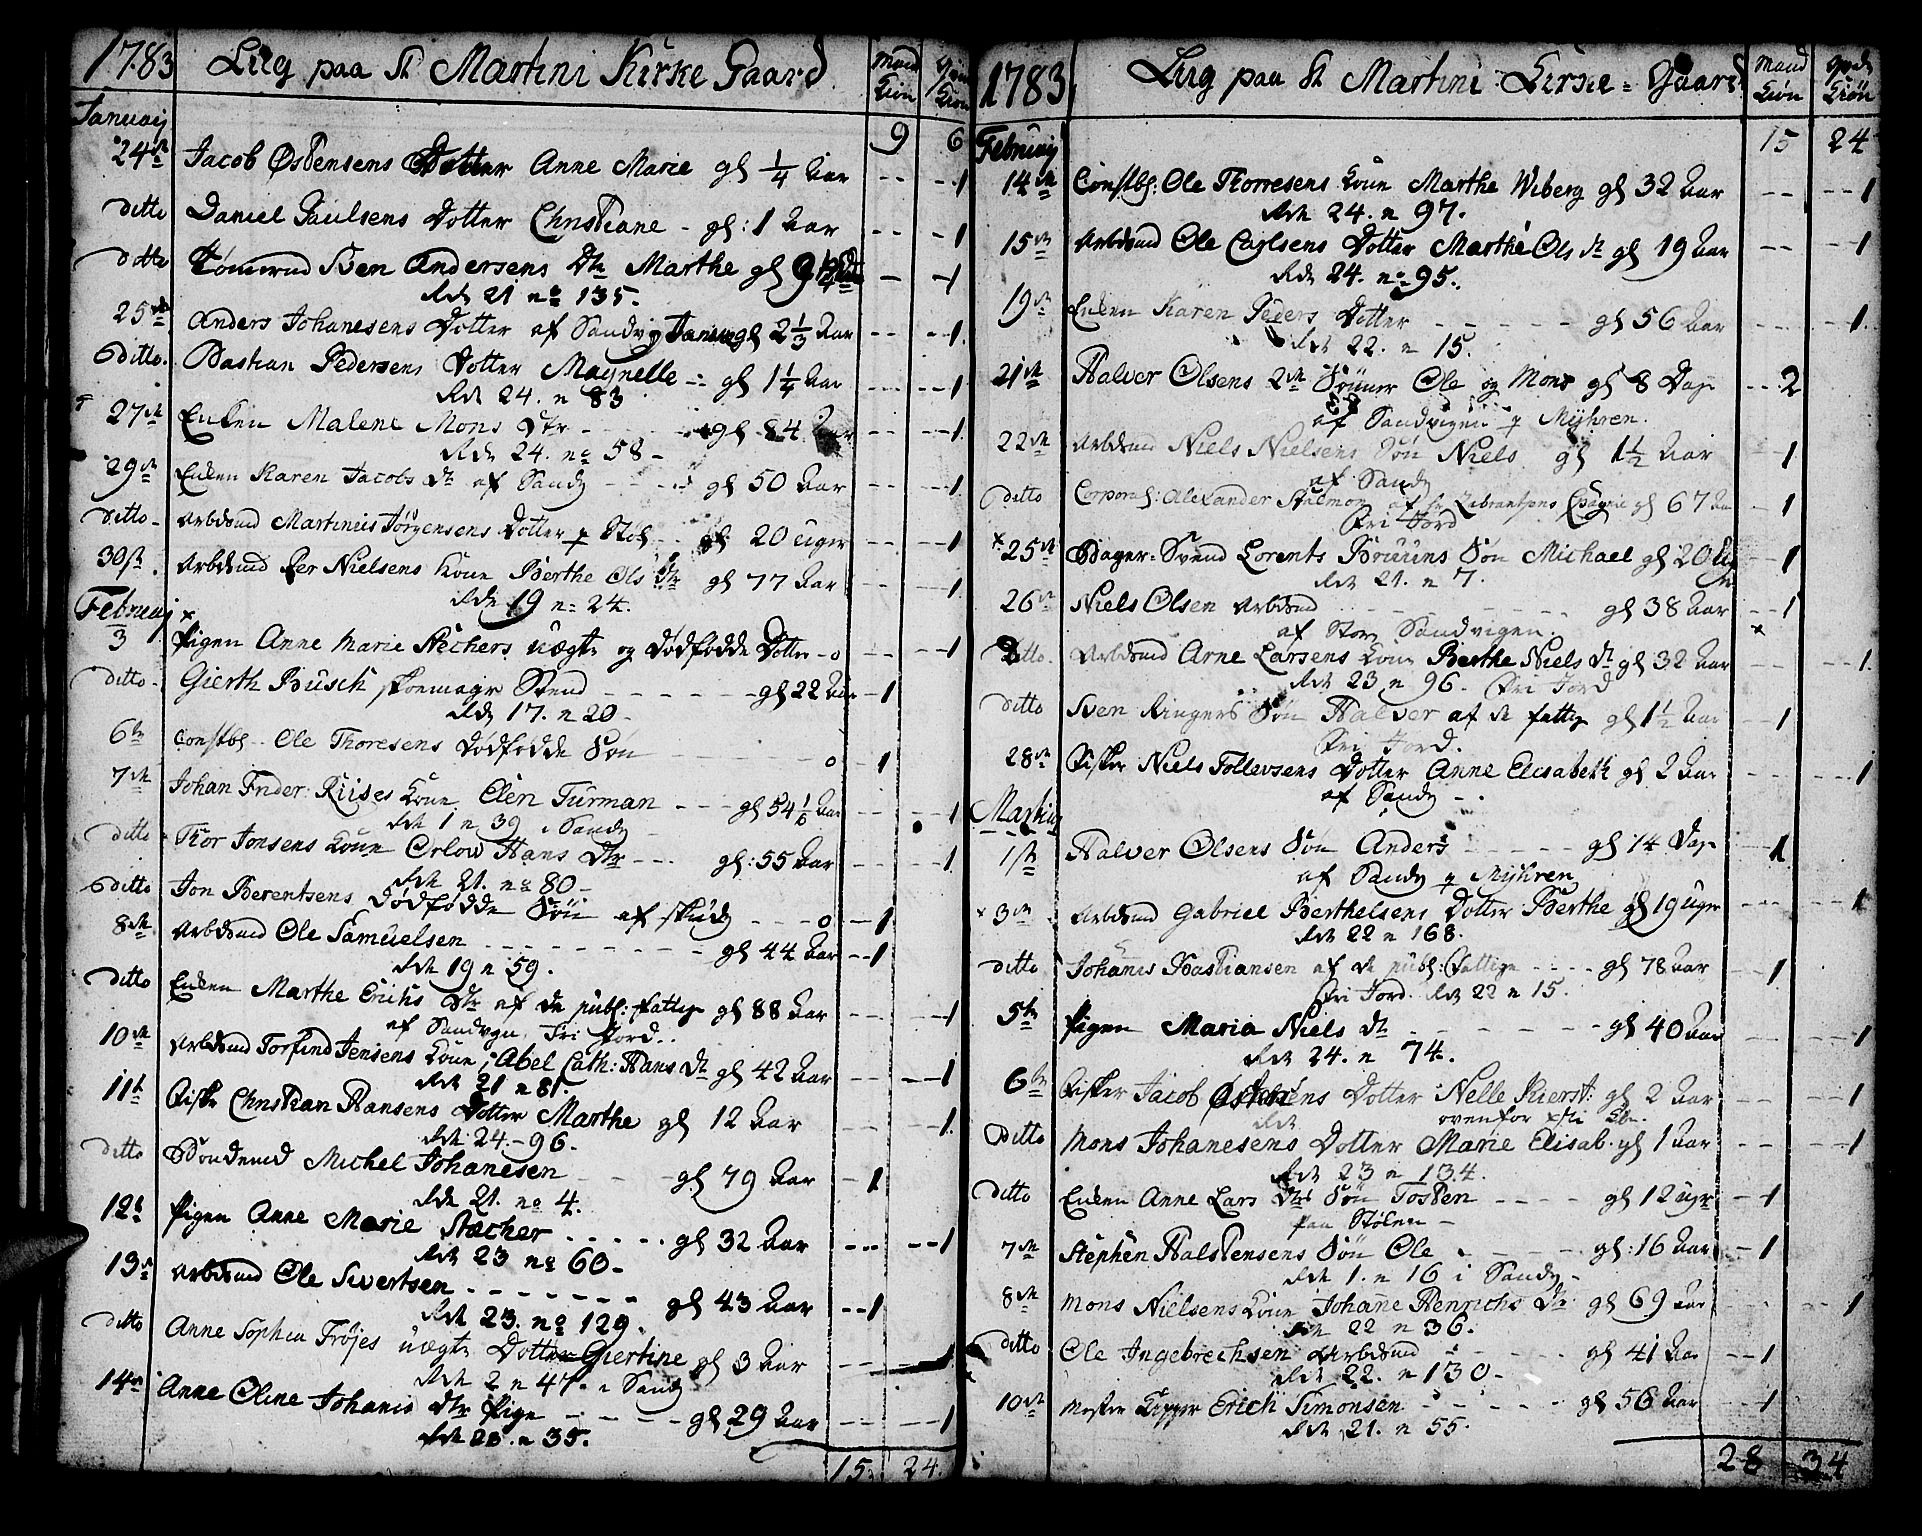 1783 Liig paa St Martini Kirke Gaard Mand Kiøn Qvin Kiøn
Januarj 9 6
24de Jacob Østensens Dotter Anne Marie gl 1/4 Aar -- --1
ditto Daniel Paulsens Dotter Christiane - gl: 1 Aar -- --1
ditto Tømrmd Sven Andersens Dtr Marthe gl 9 -- --1
Rde 21 no 135.
25de Anders Johanesens Dotter af Sandvig gl 2 1/3 Aar -- --1
ditto. Bastian Pedersens Dotter Magnelle -: gl 1 1/4 Aar -- --1
Rde 24. n 83
27de Enken Malene Mons Dtr - - - gl 84 Aar -- --1
Rde 24. no 58 -
29de Enken Karen Jacobs Dtr af Sandv - - - gl 50 Aar -- --1
ditto - Arbdsmd Martinus Jørgensens Dotter p Støl -- gl 20 uger -- --1
30st. Arbdsmd Per Nielsens Kone Berthe Ols Dtr gl 77 Aar -- --1
Rde 19 n= 24.
Februarj
3 Pigen Anne Marie Stechers uægte og Dødfødde Dotter - o -- --1
ditto - Gierth Busch skomagr Svend - - - - - - gl 22 Aar --1
Rde 17. n 20 -
6te Constbl -- Ole Thoresens Dødfødde Søn - - - - - o --1
7de Johan Frider: Riises Kone Elen Turman - - - gl 54 1/6 Aar -- --1
Rde 1 n 39 i Sandv
ditto Thor Jonsens Kone Orlow Hans Dtr - - - gl: 55 Aar -- --1
Rde 21. no 80 -
ditto Jon Berentsens Dødfødde Søn af skudv - - o --1
8de Arbdsmd Ole Samuelsen - - - - - - - - gl 44 Aar --1
Rde 19 n 59.
ditto Enken Marthe Erichs Dtr af de publ: fattige gl 88 Aar -- --1
af Sandvgn fri Jord..
10de Arbdsmd Torfind Jensens Kone, Abel Cath: Hans Dtr gl 42 Aar -- --1
Rde 21 n 81.
11te Fisker Christian Hansens Dotter Marthe gl 12 Aar -- --1
Rde 24. - 96.
ditto Bondemd Michel Johanesen - - - gl 79 Aar --1
Rde 21. no 4.
12te Pigen Anne Marie Stæcher . . . . . gl 32 Aar -- --1
Rde 23 no 60 -
13de Arbdsmd Ole Sivertsen - - - - - - - gl 43 Aar --1
Rde 23. no 129.
ditto Anne Sophia Frøjes uægte Dotter Giertine gl 3 Aar -- --1
Rde 2 n 47. i Sandv
14de Anne Oline Johanis Dtr Pige - - - - - gl 29 Aar -- --1
Rde 23. n 35.
15. 24.
1783 Liig paa St Martini Kirke = Gaard Mand Kiøn Qvin Kiøn
Februarj 15 24
14de Constbl: Ole Thorresens Kone Marthe Wiberg gl 32 Aar -- --1
Rde 24. n 97.
15de Arbdsmd Ole Carlsens Dotter Marthe Ols Dtr gl 19 Aar -- --1
Rde 24. no 95.
19de Enken Karen Peders Dotter - - - - - - gl 56 Aar -- --1.
Rde 22. n 15.
21de Halver Olsens 2de Sønner Ole og Mons gl 8 Dage --2
af Sandvigen p Myhren.
22de Arbdsmd Niels Nielsens Søn Niels gl 1 1/2 Aar --1
af Sandv
ditto Corporal: Alexander af Hr gl 67 Aar --1
Fri Jord
25de Bager = Svend Lorents Bruuns Søn Michael gl 20 --1
Rde 21. n 7.
26de Niels Olsen Arbdsmd - - - - - - gl 38 Aar --1
af Store Sandvigen.
Ditto. Arbdsmd Arne Larsens Kone Berthe Niels Dtr gl 32 Aar -- --1.
Rde 23 n 96. Fri Jord
ditto Sven Ringers Søn Halver af de fattige gl 1 1/2 Aar --1
Fri Jord.
28de Fisker Niels Tollevsens Dotter Anne Elisabeth gl 2 Aar -- --1
af Sandv - .
Martiuj
1ste Halver Olsens Søn Anders - - - - - gl 14 Dage --1
af Sandv p Myhren
3de Arbdsmd Gabriel Berthelsens Dotter Berthe gl 19 uger -- --1
Rde 22 n 168.
ditto Johanis Bastiansen af de publ: Fattige - - - - gl 78 Aar --1
Fri Jord. Rde 22 n 15.
5te Pigen Maria Niels Dtr - - - - - - gl 40 Aar -- --1
Rde 24. n 74.
6te Fisker Jacob Østensens Dotter Nelle Kierst: gl 2 Aar -- --1
Rde ovenfor
Ditto Mons Johanesens Dotter Marie Elisab. gl 1 Aar -- --1
Rde 23 n 134.
ditto Enken Anne Lars Dtrs Søn Tosten - - - - gl 12 ugr --1
paa Stølen -
7de Stephen Halstensens Søn Ole . - - - - gl: 16 Aar --1
Rde 1. n 16 i Sandv -
8de Mons Nielsens Kone Johane Henrichs Dtr gl 69 Aar -- --1
Rde 22 n 36.
ditto Ole Ingebrechsen Arbdsmd - - - - - gl 41 Aar --1
Rde 22. n 130 -
10de Mester Erich Simonsen - - - - - - gl 56 Aar --1
Rde 21. n 55.
28 34